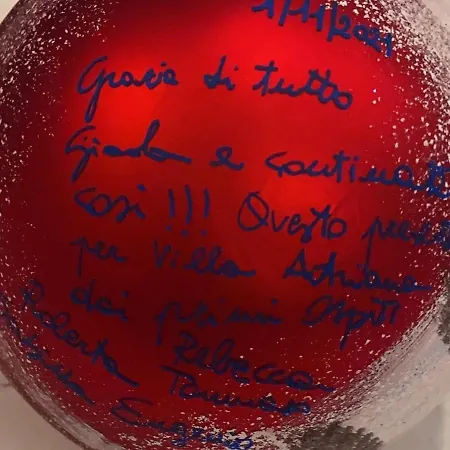 1/11/2021
Grazie di tutto
Giada e continuate
così!!! Questo
per Villa Adriana
dai primi Ospiti
Rebecca
Roberta Tommaso
Eugenio